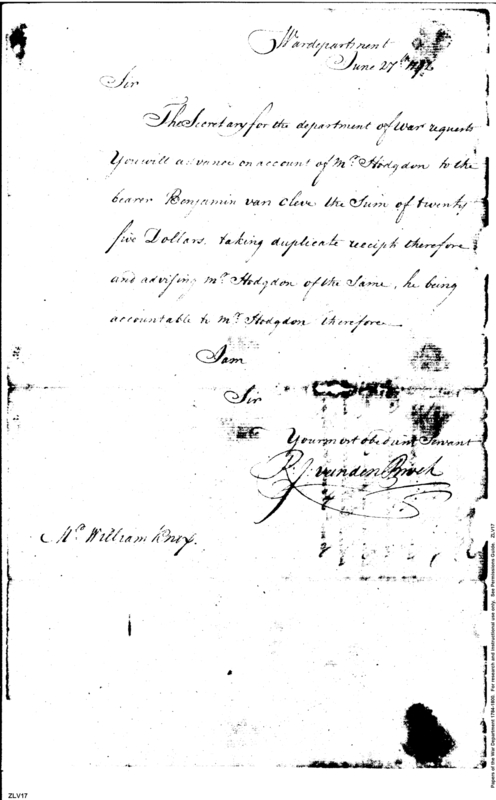 Wardepartment
June 27th 1792
Sir
The Secretary for the department of War requests
You will advance on account of Mr. Hodgdon to the
bearer Benjamin van cleve the Sum of twenty
five Dollars, taking duplicate receipts therefore
and advising Mr. Hodgdon of the Same, he being
accountable to Mr. Hodgdon therefore
I am
Sir
Your most obedient Servant
R. J. vanden Broek
Mr. William Knox.
ZLV17
Papers of the War Department 1784-1800. For research and instructional use only. See Permissions Guide. ZLV17